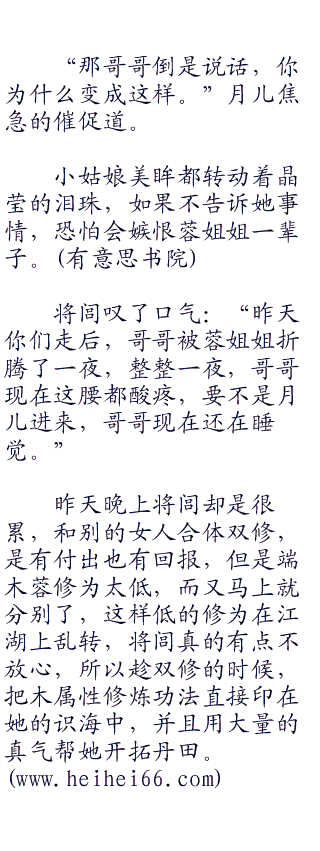 “那哥哥倒是说话，你
为什么变成这样。”月儿焦
急的催促道。
小姑娘美眸都转动着晶
莹的泪珠，如果不告诉她事
情，恐怕会嫉恨蓉姐姐一辈
子。(有意思书院)
将闾叹了口气：“昨天
你们走后，哥哥被蓉姐姐折
腾了一夜，整整一夜，哥哥
现在这腰都酸疼，要不是月
儿进来，哥哥现在还在睡
觉。”
昨天晚上将闾却是很
累，和别的女人合体双修，
是有付出也有回报，但是端
木蓉修为太低，而又马上就
分别了，这样低的修为在江
湖上乱转，将闾真的有点不
放心，所以趁双修的时候，
把木属性修炼功法直接印在
她的识海中，并且用大量的
真气帮她开拓丹田。
(www.heihei66.com)